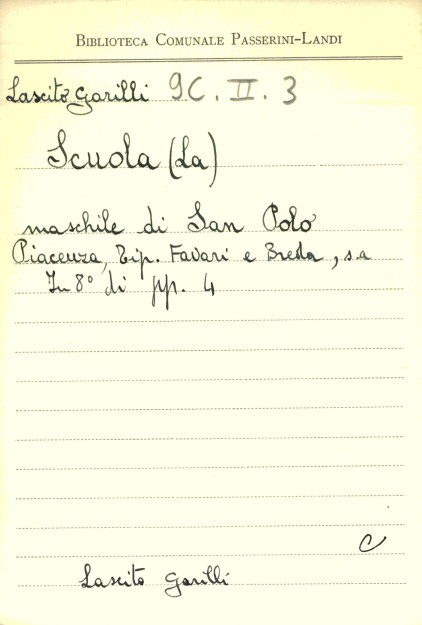 BIBLIOTECA COMUNALE PASSERINI-LANDI
Lascito Garilli 9C. II. 3
Scuola (La)
maschile di San Polo
Piacenza, Tip. Favari e Breda, s.a
In 8° di pp. 4
C
Lascito Garilli